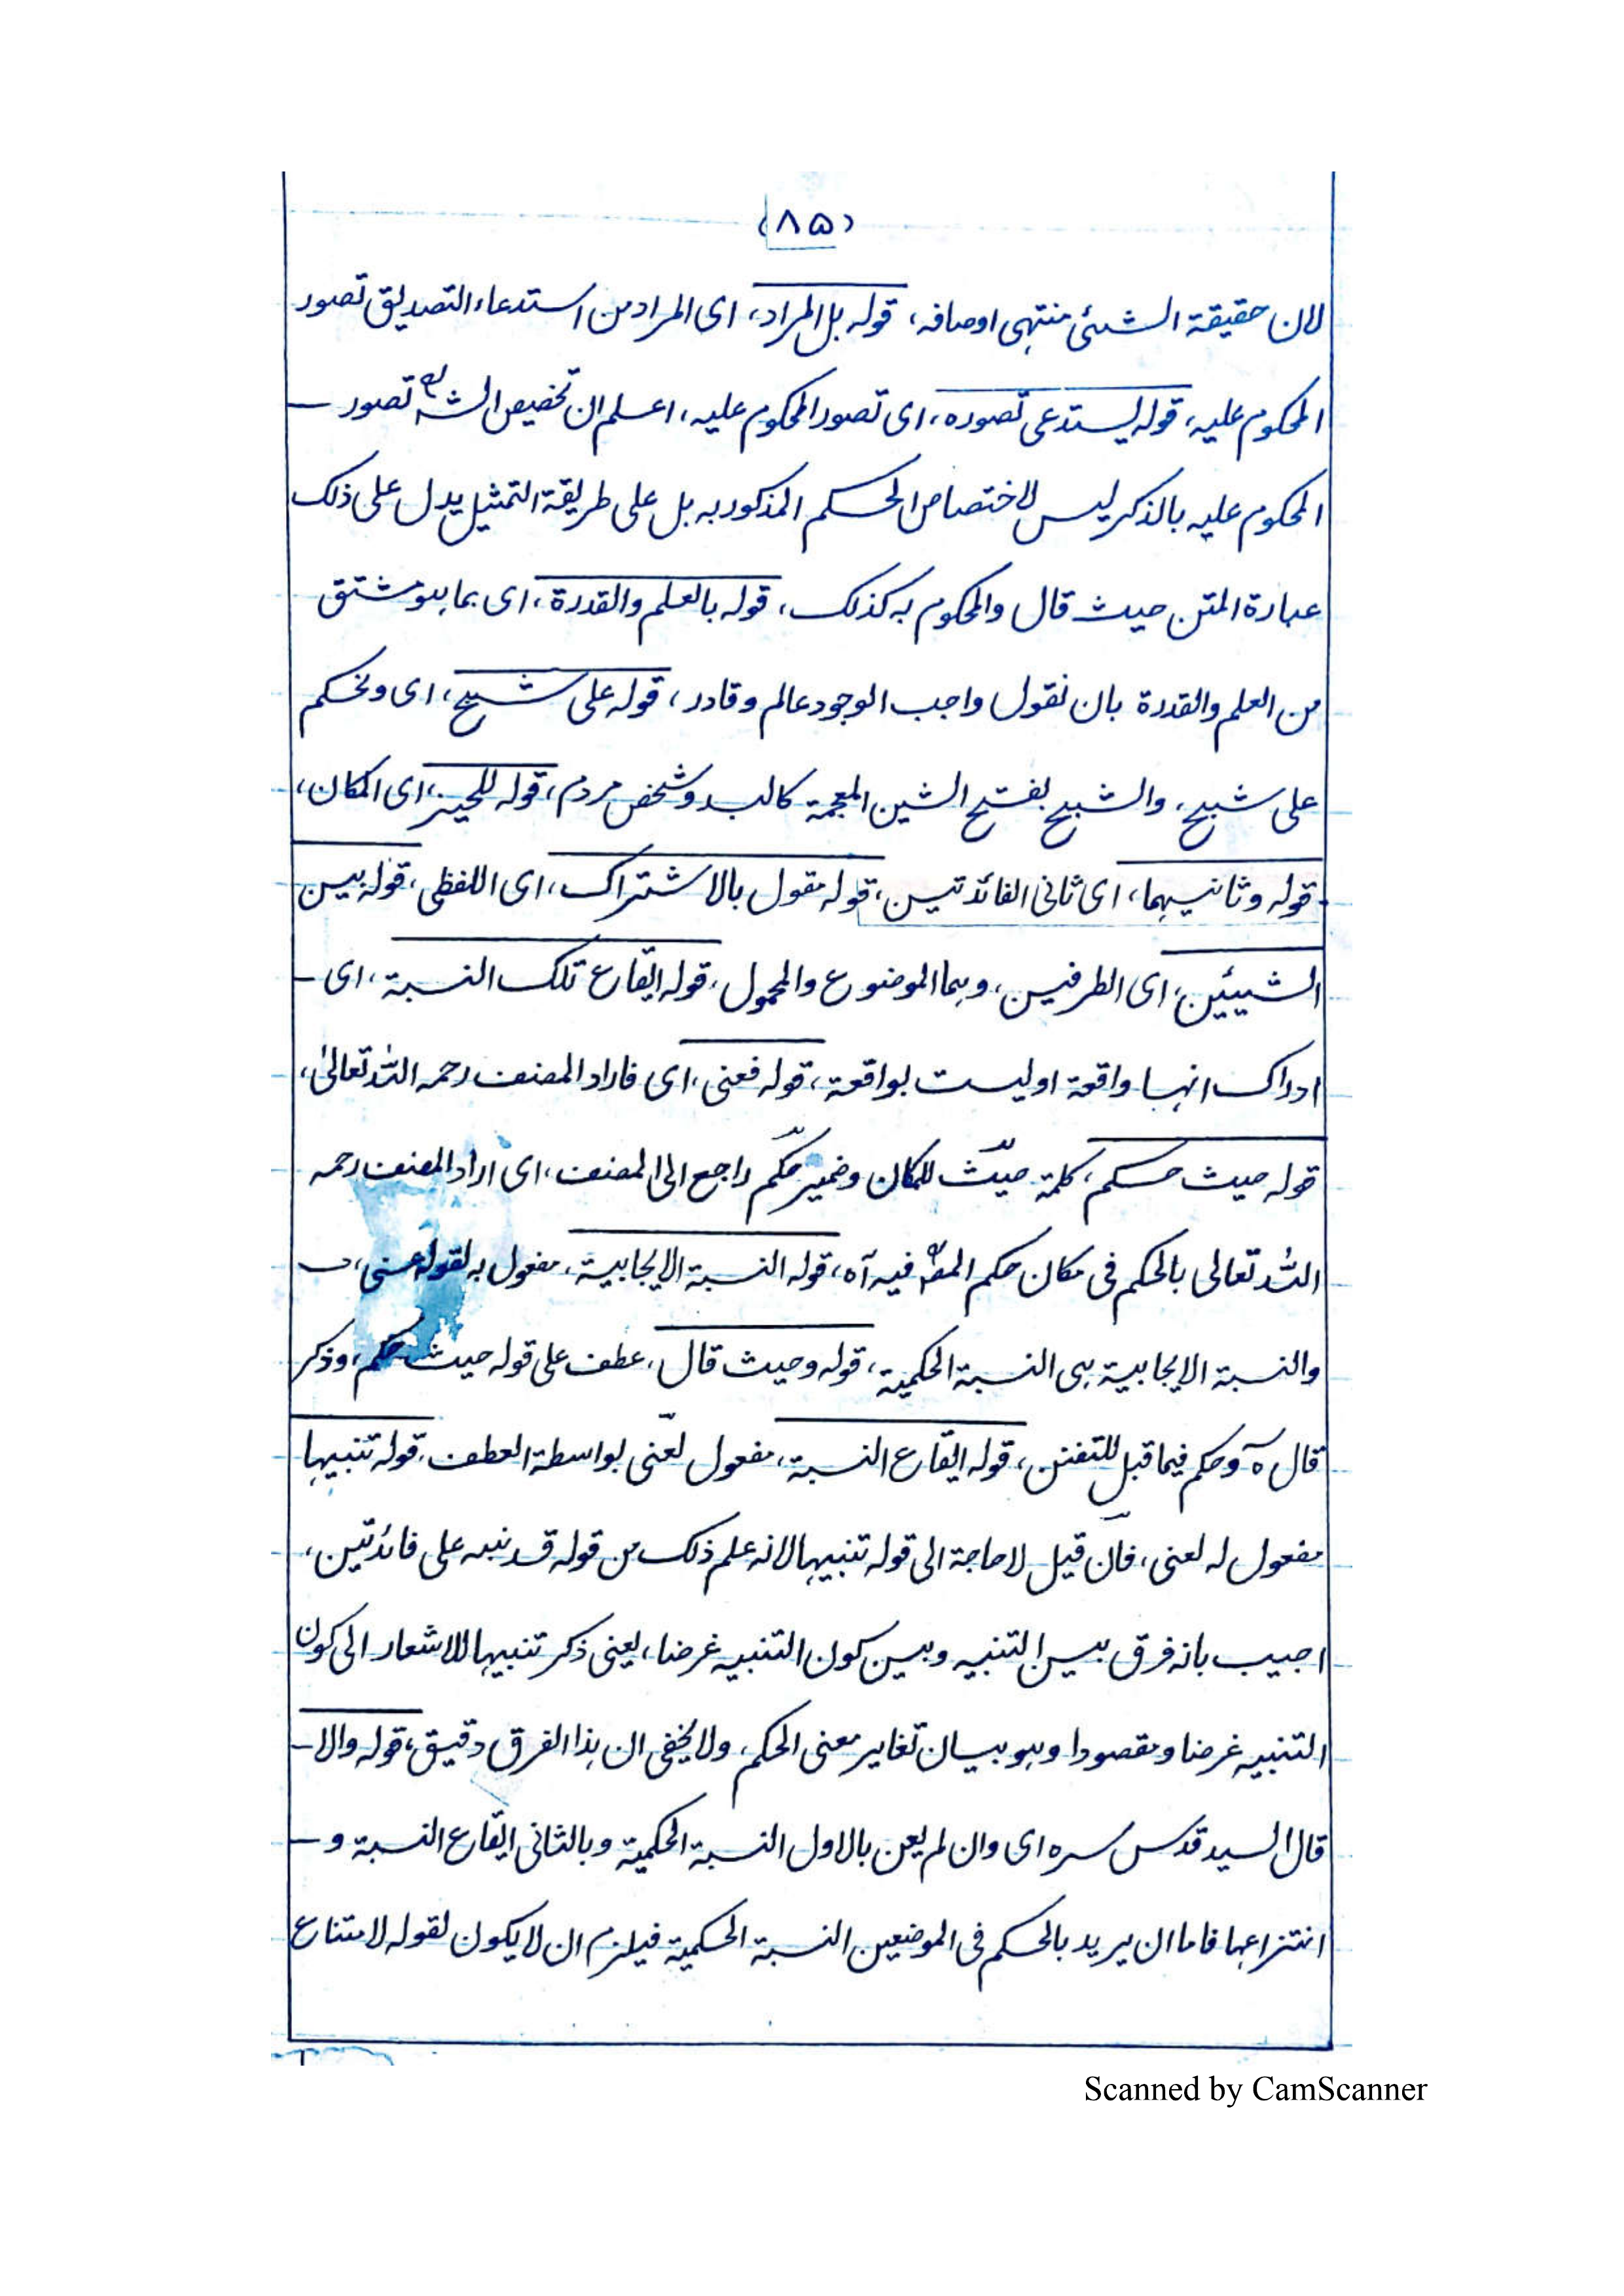 (۸۵)
لان حقيقة الشئی منتهی اوصافه، قوله بل المراد، ای المراد من استدعاء التصديق تصور
المحكوم عليه، قوله يستدعی تصوره، ای تصور المحكوم عليه، اعلم ان تخصيص الشه تصور —
المحكوم عليه بالذكر ليس لاختصاص الحكم المذكور به بل علی طريقة التمثيل يدل علی ذلک
عبارة المتن حيث قال والمحكوم به كذلک، قوله بالعلم والقدرة، ای بما هو مشتق
من العلم والقدرة بان نقول واجب الوجود عالم وقادر، قوله علی شبح، ای ونحكم
علی شبح، والشبح بفتح الشين المعجمة كالبد وشخص مردم، قوله للحيز، ای المكان،
قوله وثانيهما، ای ثانی الفائدتين، قوله مقول بالاشتراک، ای اللفظی، قوله بين
الشيئين، ای الطرفين، وهما الموضوع والمحمول، قوله ايقاع تلک النسبة، ای —
ادراک انها واقعة او ليست بواقعة، قوله فعنی، ای فاراد المصنف رحمه الله تعالیٰ،
قوله حيث حكم، كلمة حيث للمكان وضمير حكم راجع الی المصنف، ای اراد المصنف رحمه
الله تعالی بالحكم فی مكان حكم المصؒ فيه آه، قوله النسبة الايجابية، مفعول به لقوله عنی، —
والنسبة الايجابية هی النسبة الحكمية، قوله وحيث قال، عطف علی قوله حيث حكم، وذكر
قال ه وحكم فيما قبل للتفنن، قوله ايقاع النسبة، مفعول لعنی بواسطة العطف، قوله تنبيها
مفعول له لعنی، فان قيل لا حاجة الی قوله تنبيها لانه علم ذلک من قوله قد نبه علی فائدتين،
اجيب بانه فرق بين التنبيه وبين كون التنبيه غرضا، يعنی ذكر تنبيها للاشعار الی كون
التنبيه غرضا ومقصودا وهو بيان تغاير معنی الحكم، ولا يخفی ان هذا الفرق دقيق، قوله والا —
قال السيد قدس سره ای وان لم يعن بالاول النسبة الحكمية وبالثانی ايقاع النسبة و —
انتزاعها فاما ان يريد بالحكم فی الموضعين النسبة الحكمية فيلزم ان لا يكون لقوله لامتناع
Scanned by CamScanner